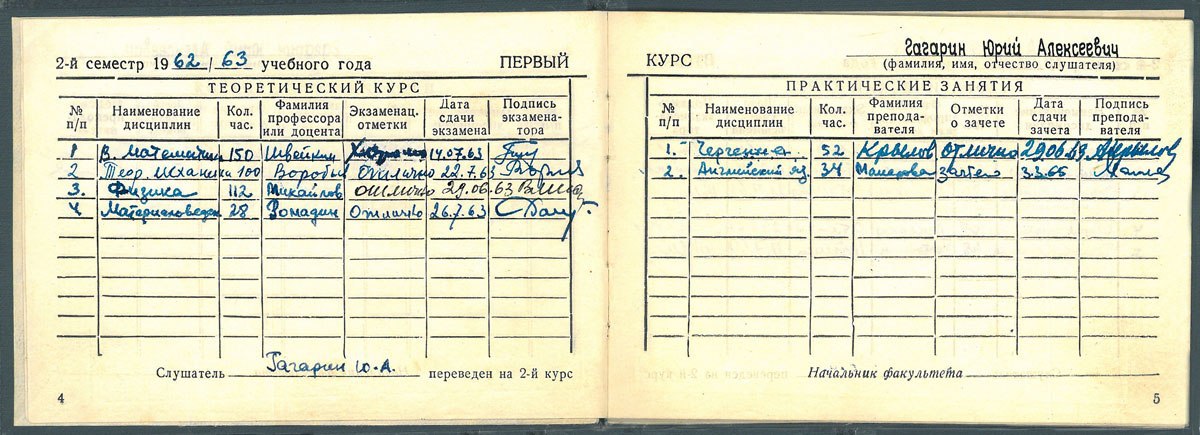 2-й семестр 1962/63 учебного года ПЕРВЫЙ
ТЕОРЕТИЧЕСКИЙ КУРС
№ п/п Наименование дисциплин Кол. час. Фамилия профессора или доцента Экзаменац. отметки Дата сдачи экзамена Подпись экзамена-тора
1 В. Математики 150 Швейкин 14.07.63
2 Теор. механика 100 Воробьёв Отлично 22.7.63
3. Физика 112 Михайлов отлично 29.06.63
4 Материаловеден 28 Ромадин Отлично 26.7.63
Слушатель Гагарин Ю.А. переведен на 2-й курс
4
КУРС Гагарин Юрий Алексеевич
(фамилия, имя, отчество слушателя)
ПРАКТИЧЕСКИЕ ЗАНЯТИЯ
№ п/п Наименование дисциплин Кол. час. Фамилия препода-вателя Отметки о зачете Дата сдачи зачета Подпись препода-вателя
1. Черчение 52 Крылов отлично 29.06.63 Крылов
2. Английский яз. 34 зачтено
Начальник факультета
5